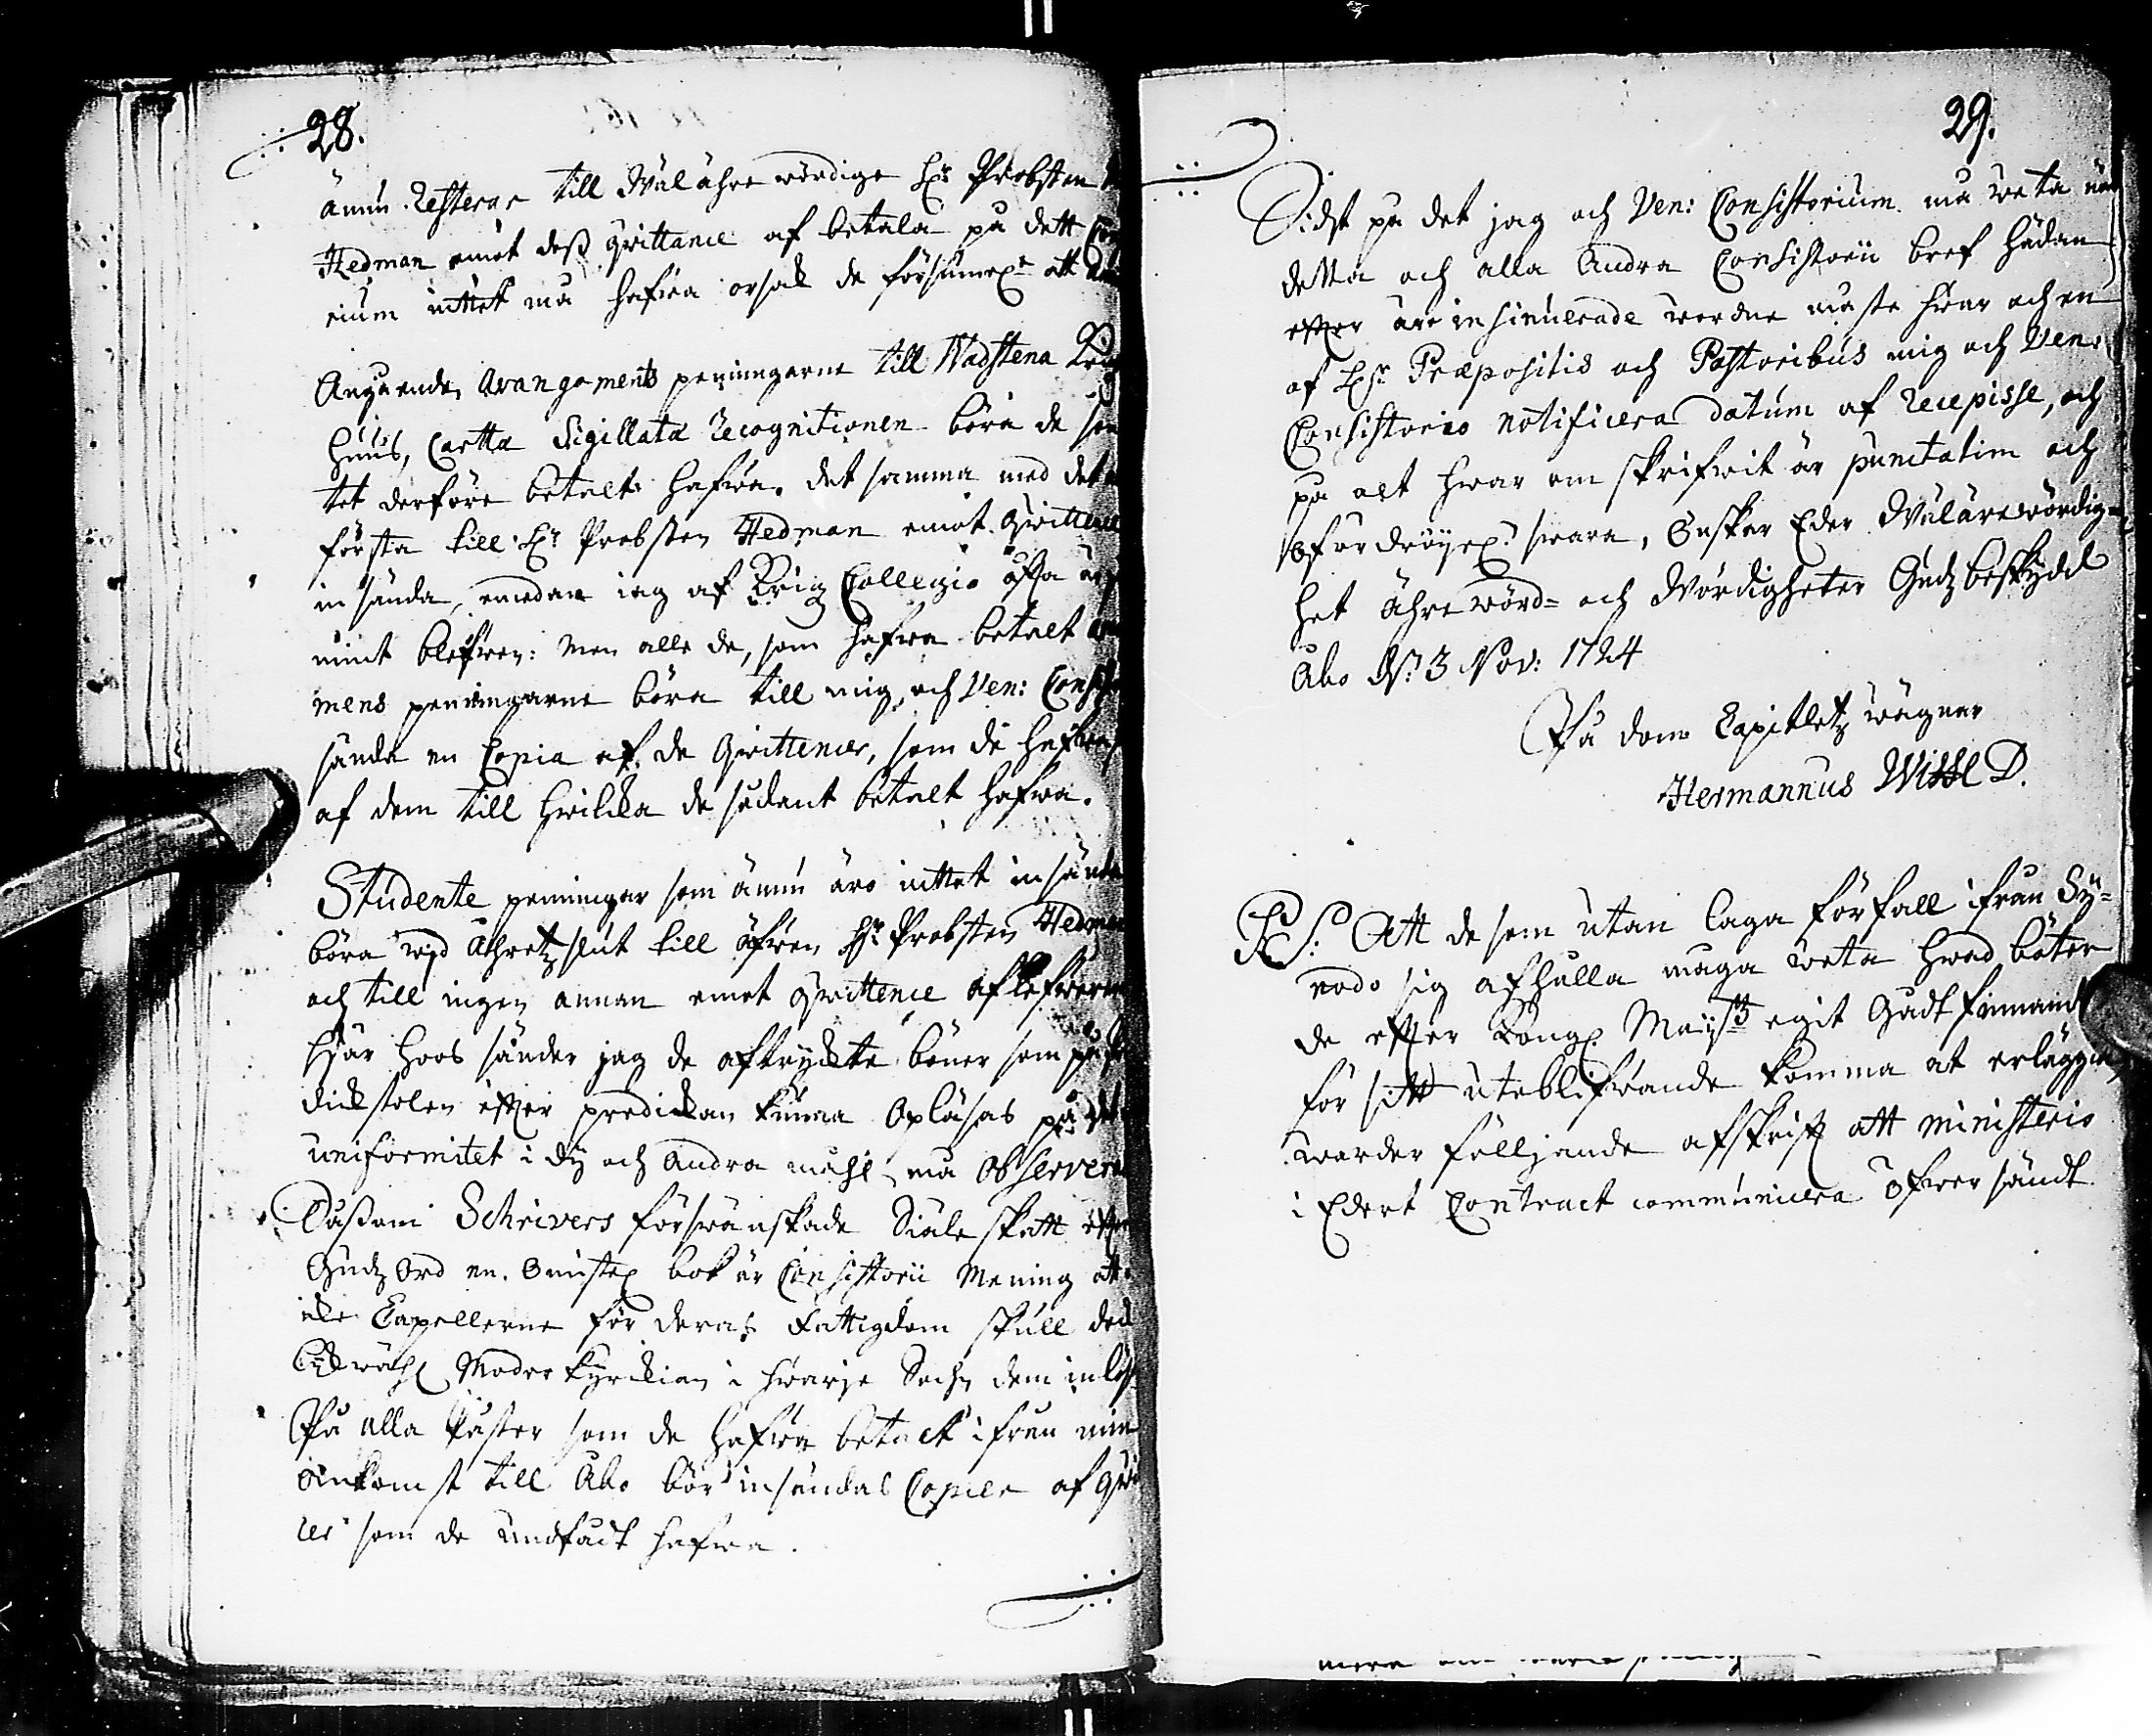 28.
ännu Resterar till Wälähre wördige H:r Probsten
Hedman emot dess qvittance af betala på dett Con
rium inttet må hafwa orsak de försumel:e att
Angående Avangements penningarne till Wadstena Krig
huus, Cartta Sigillatæ Recognitionen böra de som
tet derföre betalt hafwa, det samma med det
första till H:r Probsten Hedman emot qvittence
insända, emedan iag af Krigz Collegio offta
mint blefwen: Men alle de, som hafwa betalt
mens penningarne böra till mig, och Ven: Consisto
sända en Copia af de qvittencer, som de hafwa
af dem till hwilcka de sådant betalt hafwa.
Studente penningar som ännu äro inttet insända
böra wid Åhretz slut till öfwen H:r Probsten Hedman
och till ingen annan emot qvittence aflefwerera
Här hoos sänder jag de aftryckte böner som på
dickstolen efter predickan kunna Opläsas på det
uniformitet i dy och Andra måhl må Observera
Schrivers förswänskade Siäle skatt efter
Gudz Ord en bok är Consistorii Mening att
icke Capellerne för deras Fattigdom skull
Moder kyrckian i hwarje Sochn dem inlös
På alla Påster som de hafwa betalt ifrån min
Ankomst till Åbo bör insändas Copier af qvi
cer som de undfådt hafwa.
29.
Sidst på det jag och Ven: Consistorium må weta när
detta och alla Andra Consistorii bref hädan
efter äro insinuerade wordne måste hwar och en
af H:r Præpositis och Pastoribus mig och Ven:
Consistorio notificera datum af recepisse, och
på alt hwar om skrifwit är punctatim och
ofördröijel: swara, Önskar Eder Wälärewördig=
het Ährewörd= och Wördigheter Gudz beskydd
Åbo d: 3 Nov: 1724
På dom Capitletz wägnar
Hermannus Witte D.
P.S. Att de som utan laga förfall ifrån Sy=
nodo sig afhålla måga weta hwad böter
de efter Kongl Maij:tz egit Gudtfinnand
för sitt uteblifwande komma at erläggia,
warder fölljande afskrift att ministerio
i Edert Contract communicera öfwersändt